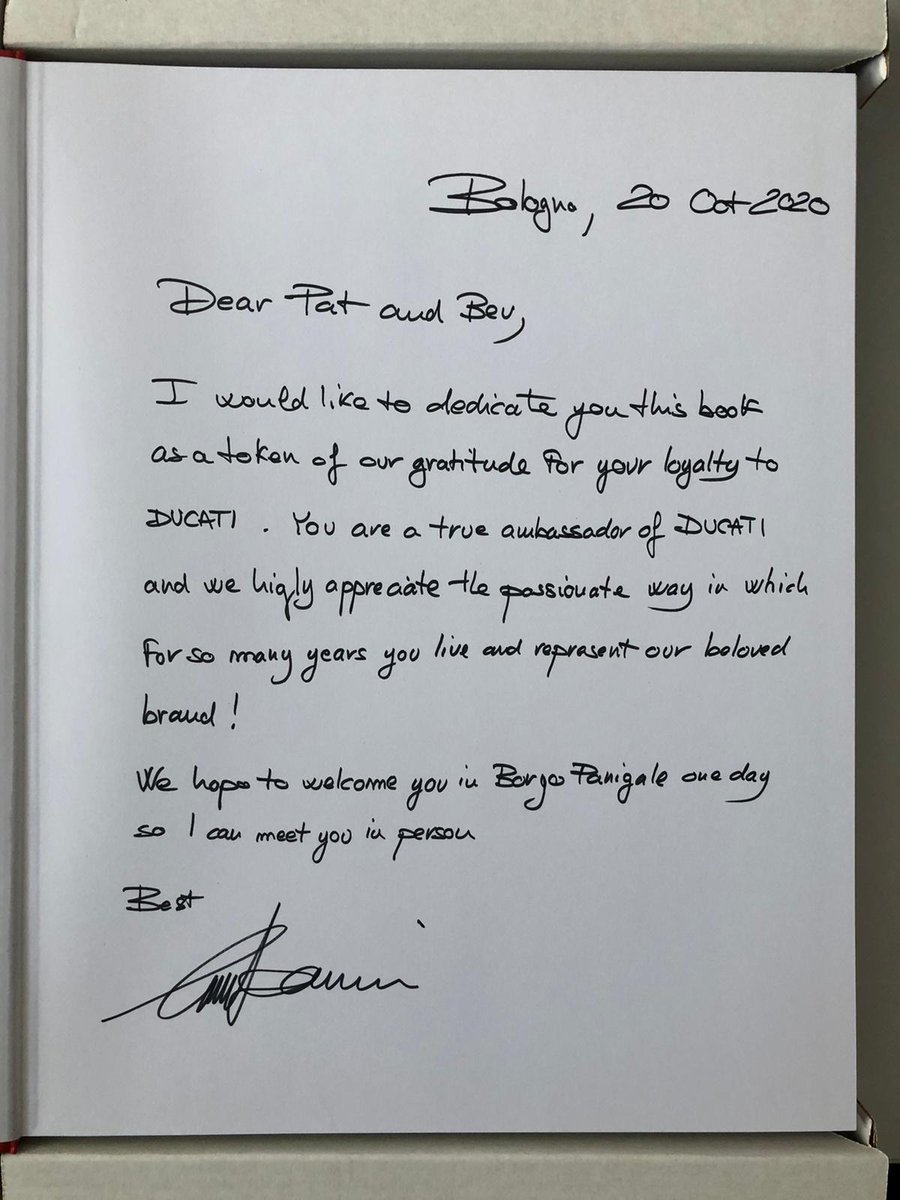 Bologna, 20 Oct 2020
Dear Pat and Bev,
I would like to dedicate you this book
as a token of our gratitude for your loyalty to
DUCATI. You are a true ambassador of DUCATI
and we higly appreciate the passionate way in which
for so many years you live and represent our beloved
brand!
We hope to welcome you in Borgo Panigale one day
so I can meet you in person
Best